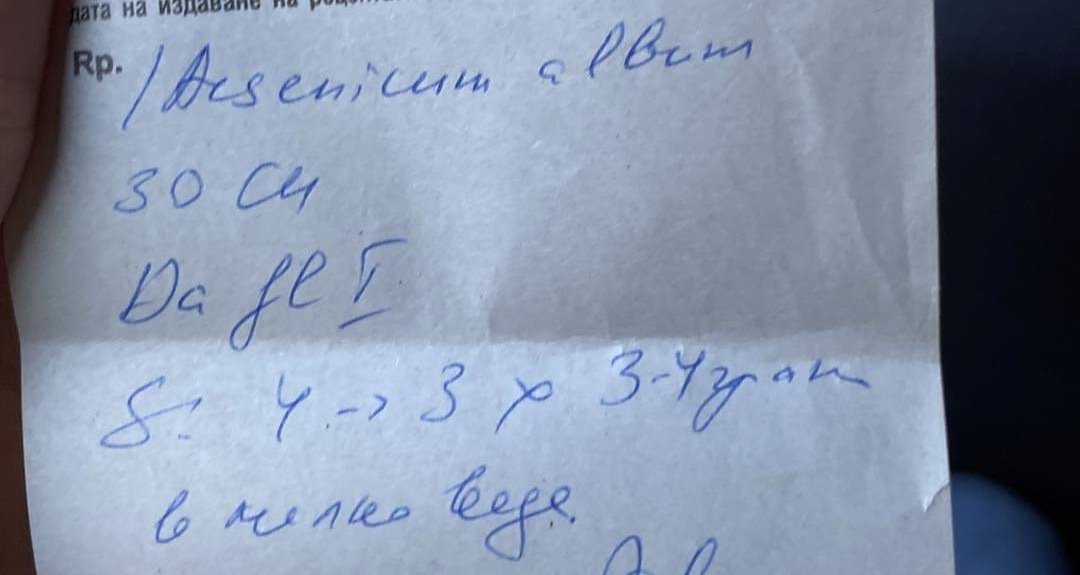 дата на издаване на
Rp. / Arsenicum album
30 CH
Da fl I
S: 4 -> 3 x 3-4 гран
в малко вода.